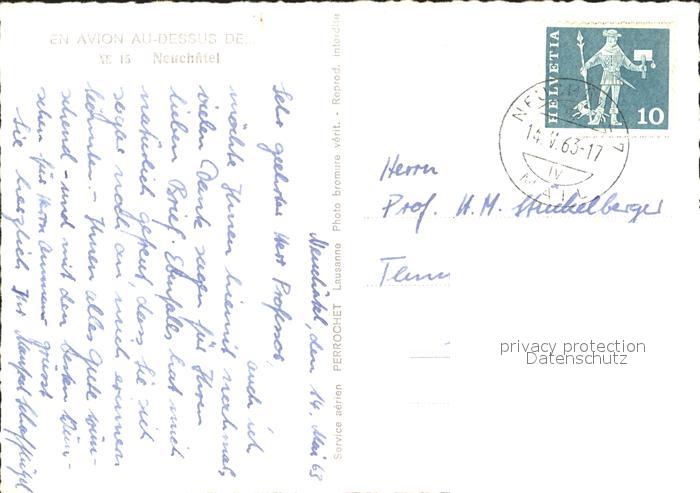 EN AVION AU-DESSUS DE...
YE 15 Neuchâtel
Neuchâtel, den 14. Mai 63
Sehr geehrter Herr Professor,
auch ich
möchte Ihnen hiemit nochmals
vielen Dank sagen für Ihren
lieben Brief. Ebenfalls hat mich
natürlich gefreut, dass Sie sich
sogar noch an mich erinnern
könnten. - Ihnen alles Gute wün-
schend - und mit den besten Wün-
schen für Herrn grüsst
Sie herzlich Ihr
Service aérien PERROCHET Lausanne Photo bromure vérit. - Reprod. interdite
HELVETIA
10
NEUCH
1
14.V.63-17
IV
Herrn
Prof. H. M. Stuckelberger
privacy protection
Datenschutz